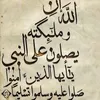 إن الله
وملئكته
يصلون على النبي
يايها الذين امنوا
صلوا عليه وسلموا تسليما